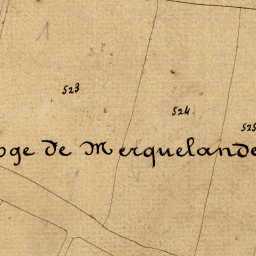 523
524
525
oge de Merquelande